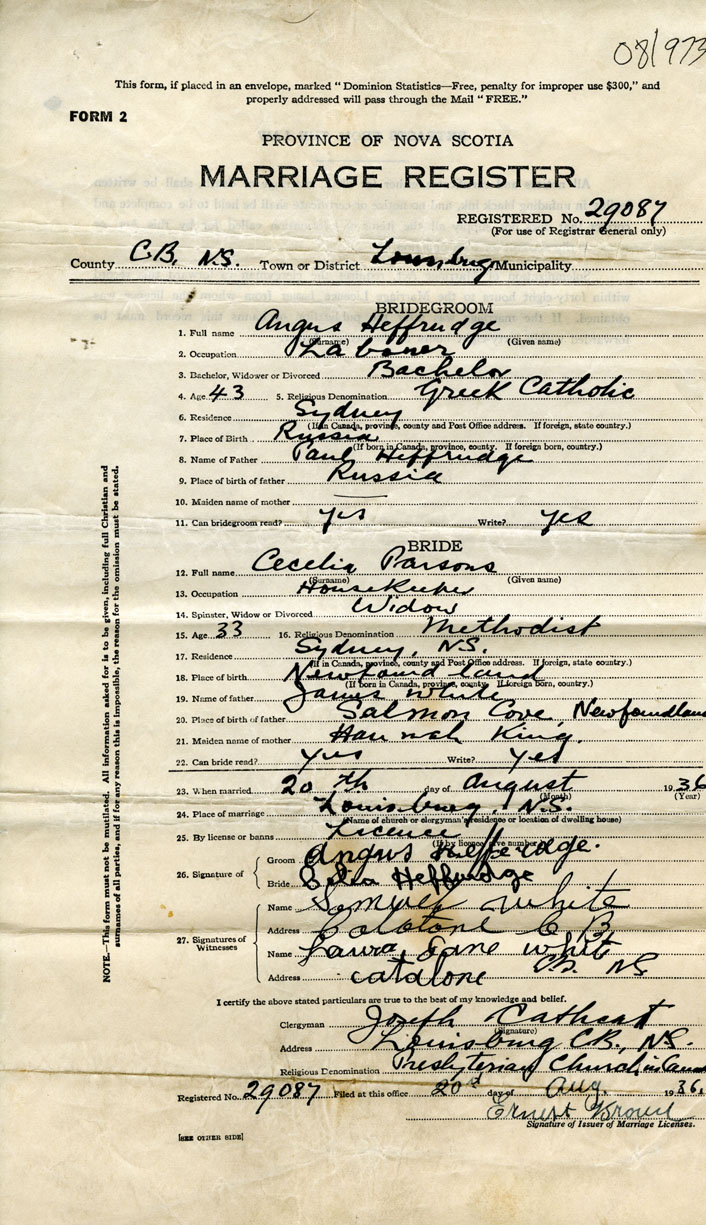 08/973
This form, if placed in an envelope, marked "Dominion Statistics—Free, penalty for improper use $300," and
properly addressed will pass through the Mail "FREE."
FORM 2
PROVINCE OF NOVA SCOTIA
MARRIAGE REGISTER
REGISTERED No. 29087
(For use of Registrar General only)
County C.B. N.S. Town or District Louisburg Municipality
BRIDEGROOM
1. Full name Angus Heffrudge
(Surname) (Given name)
2. Occupation Laborer
3. Bachelor, Widower or Divorced Bachelor
4. Age 43 5. Religious Denomination Greek Catholic
6. Residence Sydney
(If in Canada, province, county and Post Office address. If foreign, state country.)
7. Place of Birth Russia
(If born in Canada, province, county. If foreign born, country.)
8. Name of Father Paul Heffrudge
9. Place of birth of father Russia
10. Maiden name of mother —
11. Can bridegroom read? yes Write? yes
BRIDE
12. Full name Cecelia Parsons
(Surname) (Given name)
13. Occupation Housekeeper
14. Spinster, Widow or Divorced Widow
15. Age 33 16. Religious Denomination Methodist
17. Residence Sydney, N.S.
(If in Canada, province, county and Post Office address. If foreign, state country.)
18. Place of birth Newfoundland
(If born in Canada, province, county. If foreign born, country.)
19. Name of father James White
20. Place of birth of father Salmon Cove, Newfoundland
21. Maiden name of mother Hannah King.
22. Can bride read? yes Write? yes
23. When married 20th day of August 1936
(Month) (Year)
24. Place of marriage Louisburg, N.S.
(Name of church or clergyman's residence or location of dwelling house)
25. By license or banns Licence
(If by licence, give number)
26. Signature of
Groom Angus Hefferdge.
Bride Heffrudge
27. Signatures of
Witnesses
Name White
Address Catalone C B
Name Laura Jane White
Address Catalone C.B. N S
I certify the above stated particulars are true to the best of my knowledge and belief.
Clergyman Joseph Cathcart
(Signature)
Address Louisburg C.B., N.S.
Religious Denomination Presbyterian Church in
Registered No. 29087 Filed at this office 20th day of Aug. 1936.
Ernest Brown
Signature of Issuer of Marriage Licenses.
[SEE OTHER SIDE]
NOTE.—This form must not be mutilated. All information asked for is to be given, including full Christian and
surnames of all parties, and if for any reason this is impossible, the reason for the omission must be stated.